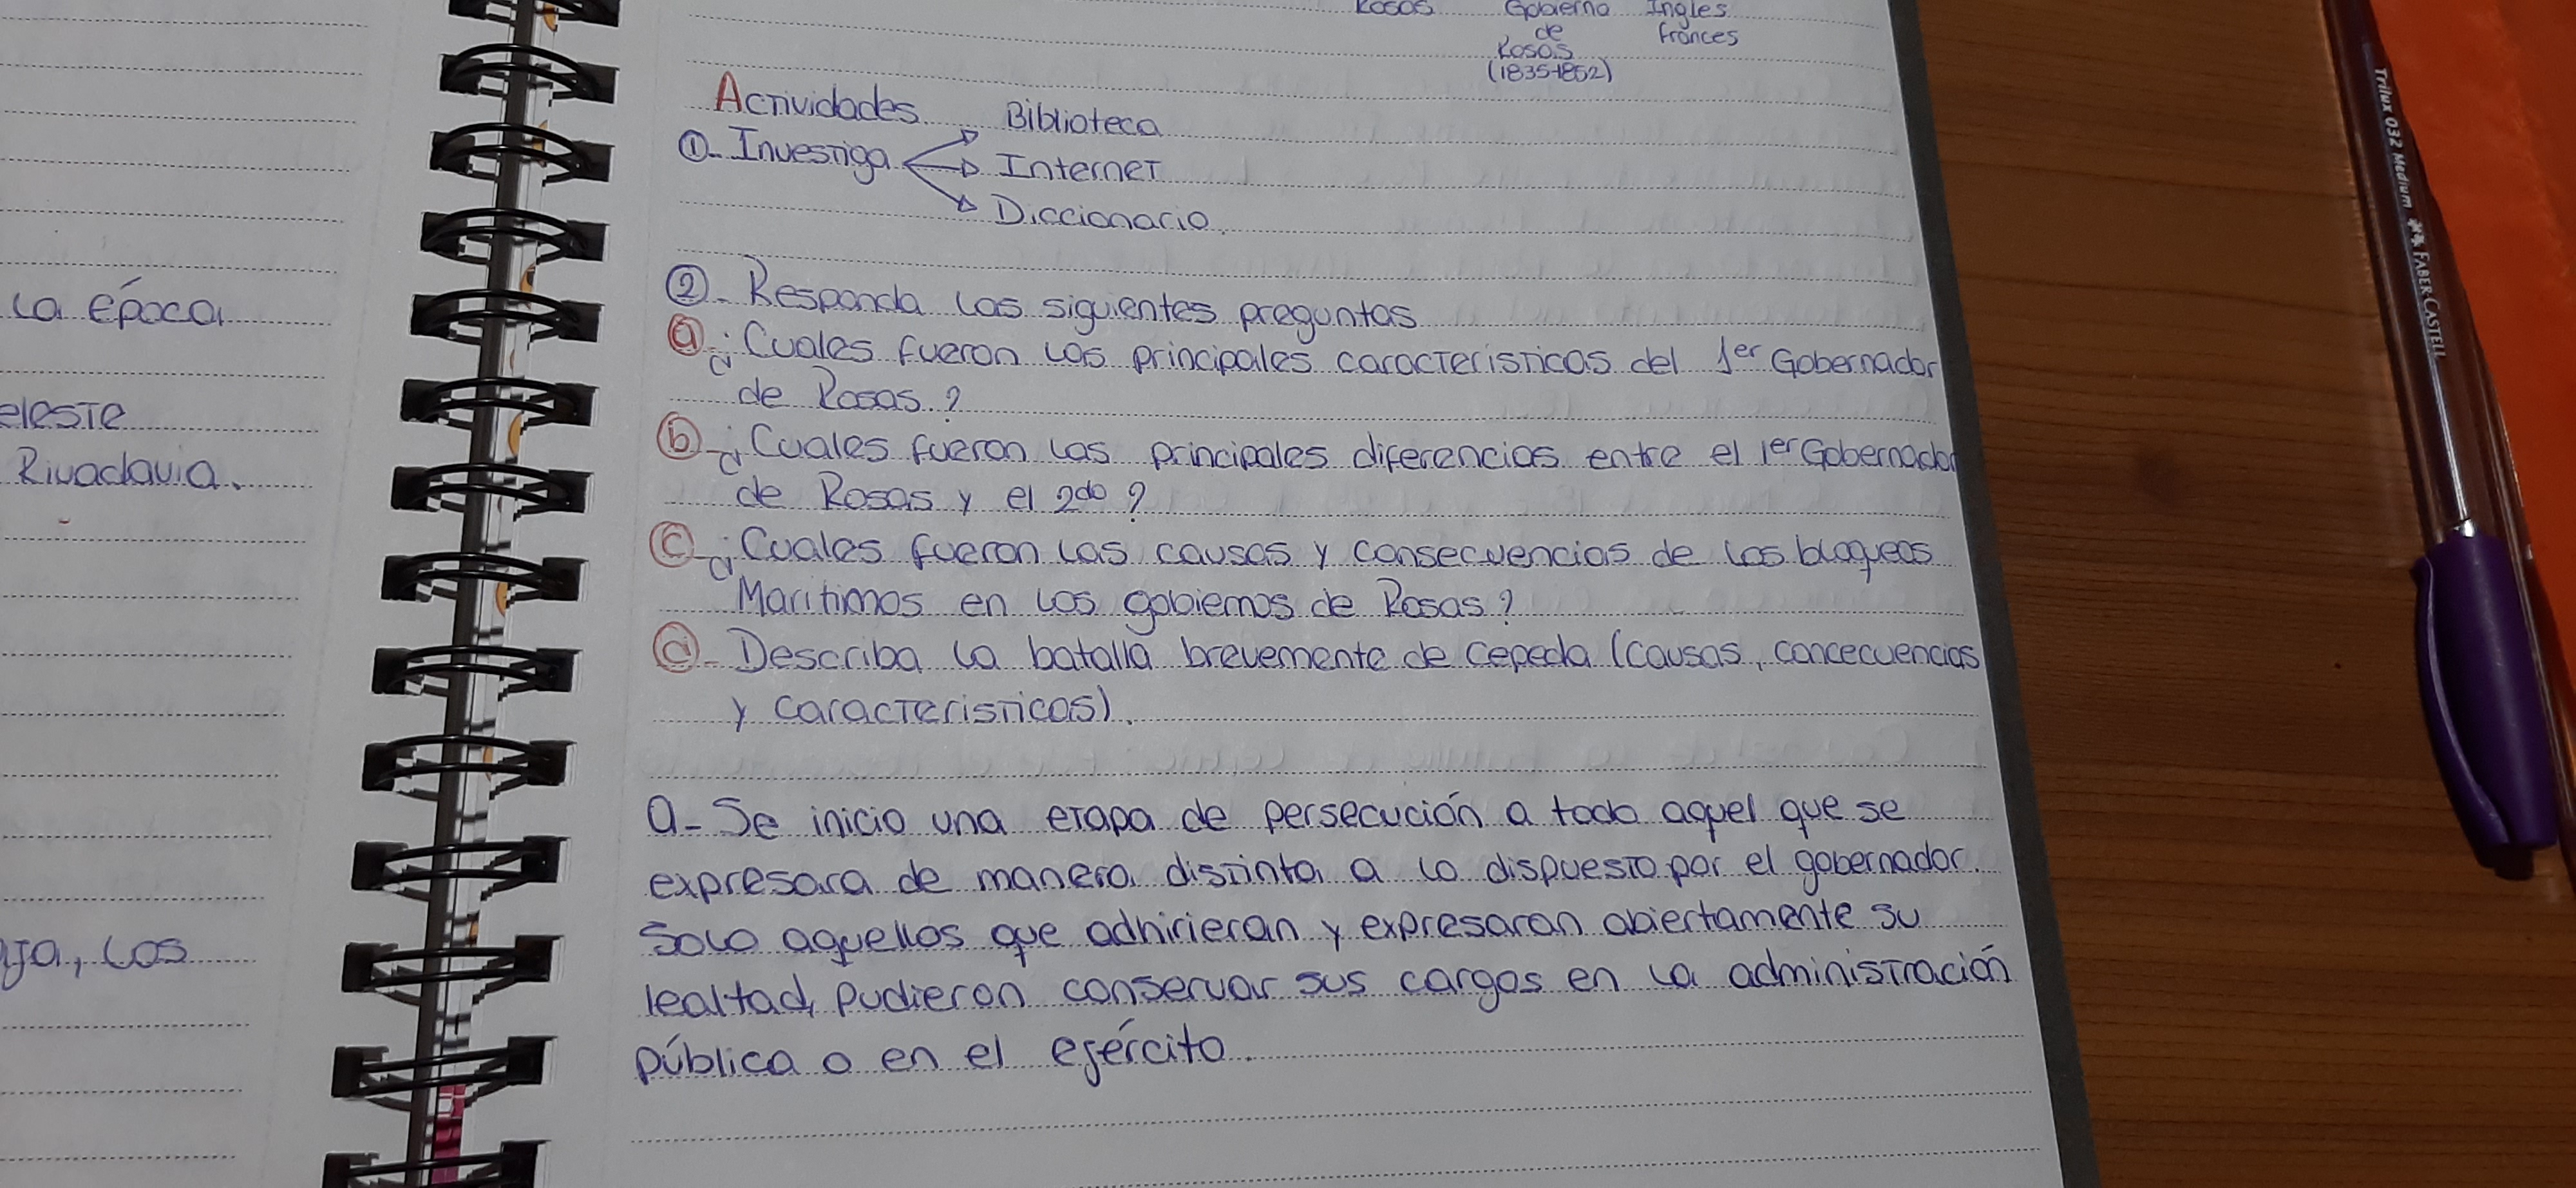 la época
eleste
Rivadavia.
los
Rosas Gobierno Ingles
de frances
Rosas
(1835-1852)
Actividades
①- Investiga → Biblioteca
→ Internet
→ Diccionario.
②- Responda las siguientes preguntas
a- ¿Cuales fueron las principales caracteristicas del 1er Gobernador
de Rosas?
b- ¿Cuales fueron las principales diferencias entre el 1er Gobernador
de Rosas y el 2do?
c- ¿Cuales fueron las causas y consecuencias de los bloqueos
Maritimos en los gobiernos de Rosas?
d- Describa la batalla brevemente de Cepeda (causas, concecuencias
y caracteristicas).
a- Se inicio una etapa de persecución a todo aquel que se
expresara de manera distinta a lo dispuesto por el gobernador.
Solo aquellos que adhirieran y expresaran abiertamente su
lealtad, pudieron conservar sus cargos en la administración
pública o en el ejército.
Trilux 032 Medium FABER CASTELL